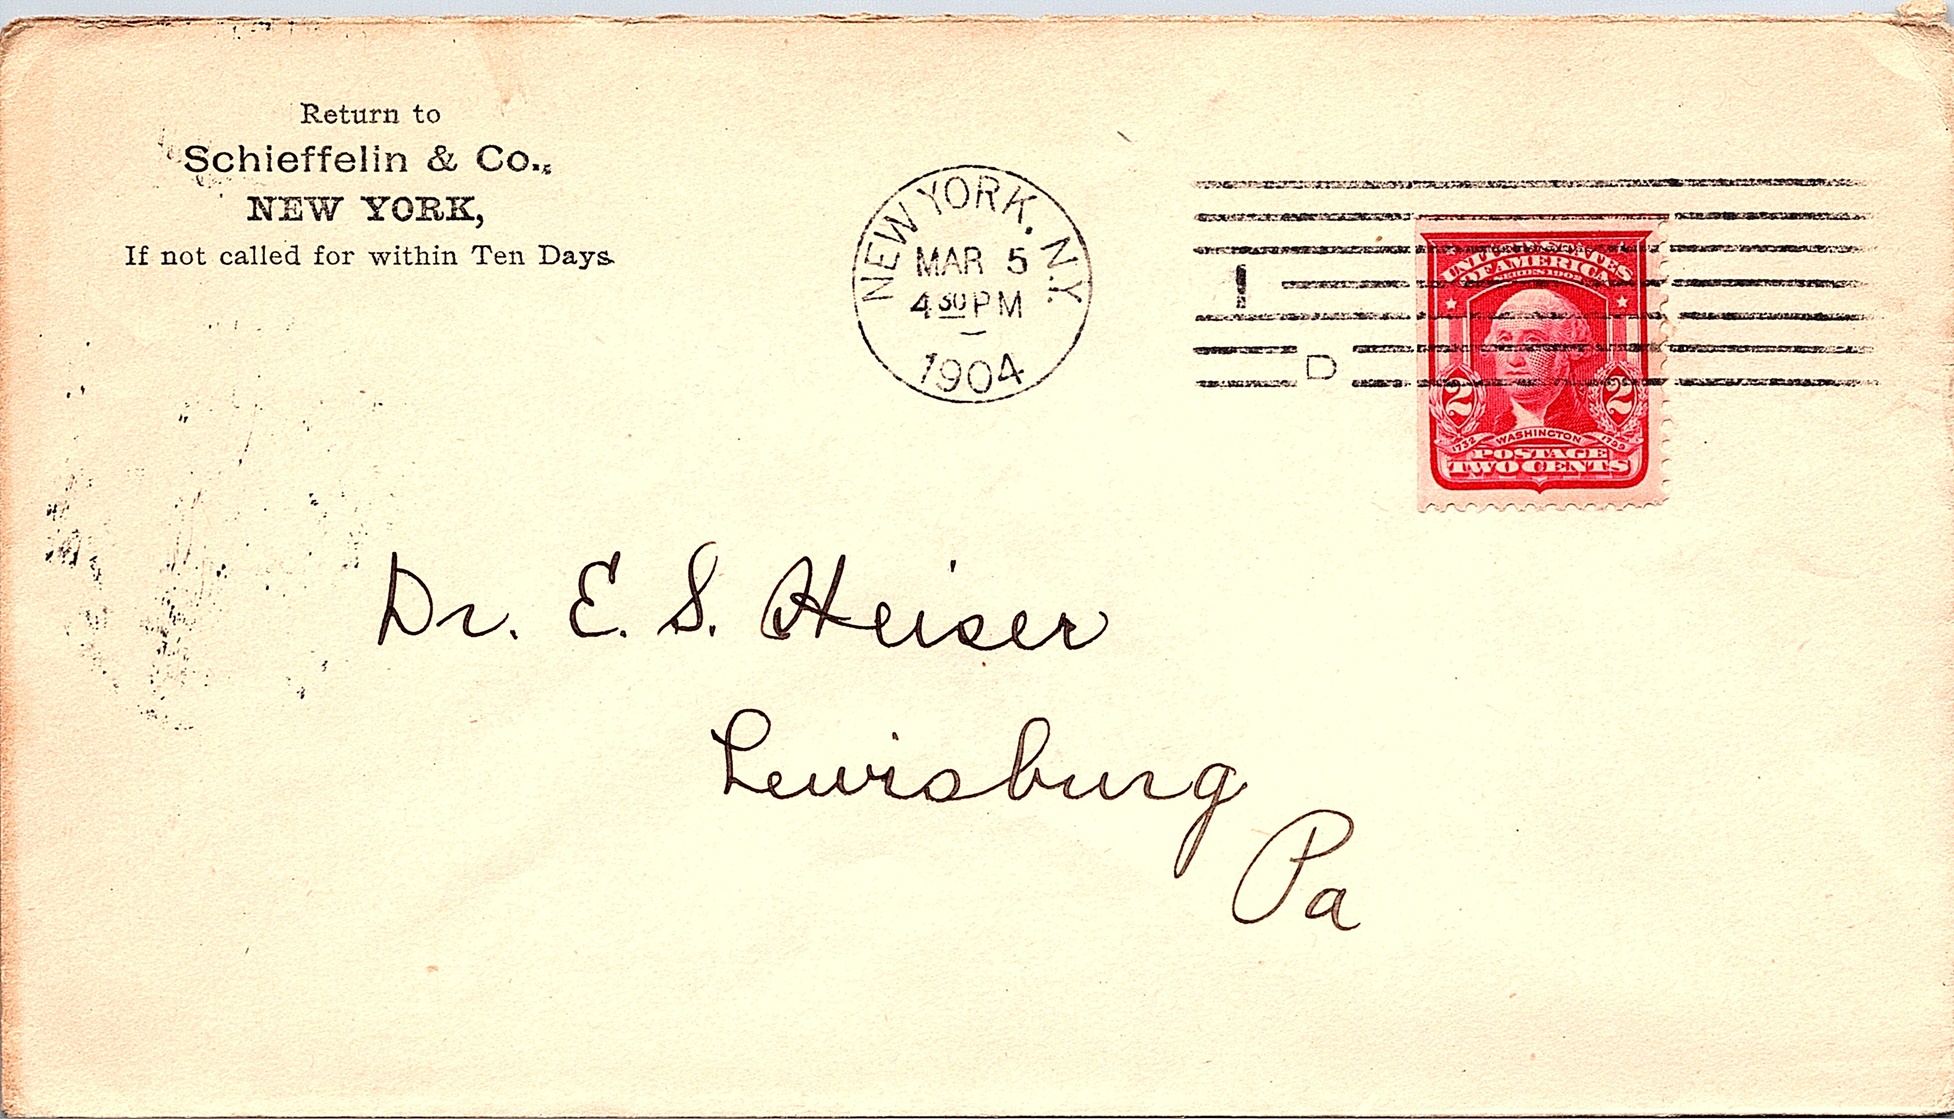 Return to
Schieffelin & Co.,
NEW YORK,
If not called for within Ten Days.
NEW YORK, N.Y.
MAR 5
4 30 PM
1904
1
D
UNITED STATES
OF AMERICA
SERIES 1902
2 2
1732 WASHINGTON 1799
POSTAGE
TWO CENTS
Dr. E. S. Heiser
Lewisburg
Pa